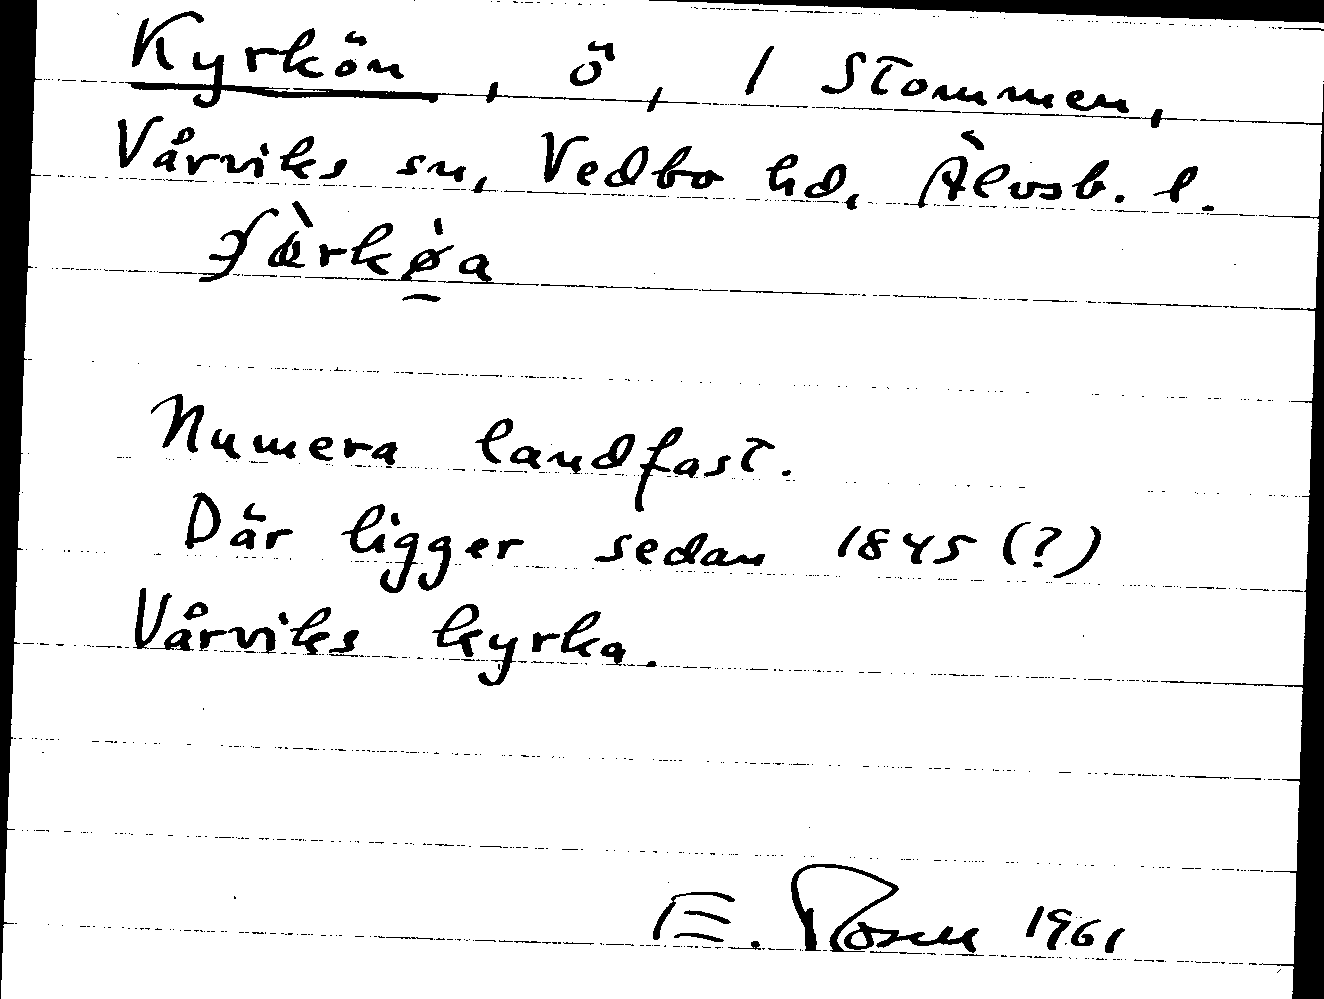 Kyrkön, ö, 1 Stommen,
Vårviks sn, Vedbo hd, Älvsb. l.
Numera landfast.
Där ligger sedan 1845 (?)
Vårviks kyrka.
E. Rosell 1961